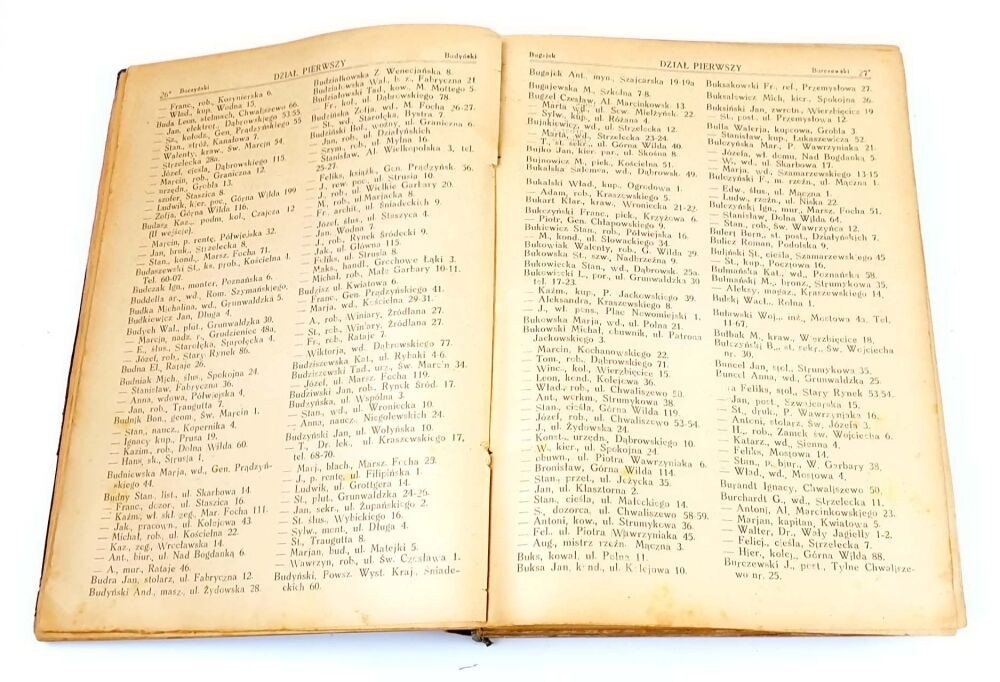 26* Buczyński
DZIAŁ PIERWSZY
Budyński
— Franc., rob., Korynierska 6.
— Wład., kup. Wodna 15.
Buda Leon, stelmach, Chwaliszewo 66.
— Jan, elektrot., Dąbrowskiego 53/55.
— Sz., kołodz., Gen. Prądzyńskiego 55
— Stan., stróż, Kanałowa 7.
— Walenty, kraw., Św. Marcin 54.
— Strzelecka 28a.
— Józef, cieśla, Dąbrowskiego 115.
— Marcin, rob., Graniczna 12.
— urzędn., Grobla 13.
— szofer, Staszica 8.
— Ludwik, kier. poc., Górna Wilda 199
— Zofja, Górna Wilda 116.
Budasz Kaz., podm. kol., Czajcza 12
(II wejście).
— Marcin, p. rentę, Półwiejska 32.
— Jan, bruk., Strzelecka 8.
— Stan., kond., Marsz. Focha 71.
Budaszewski St., ks. prob., Kościelna 1.
Tel. 60-07.
Budczak Ign., monter, Poznańska 6.
Buddella ar., wd., Rom. Szymańskiego,
Budka Michalina, wd., Grunwaldzka 5.
Budkiewicz Jan, Długa 4.
Budych Wal., plut., Grunwaldzka 30.
— Marcin, nadz. r., Grodzieniec 48a,
— E., ślus., Starołęka, Starołęcka 4.
— Józef, rob., Stary Rynek 86.
Budna El., Rataje 26.
Budniak Mich., ślus., Spokojna 24.
— Stanisław, Fabryczna 36.
— Anna, wdowa, Półwiejska 4,
— Jan, rob., Traugutta 7.
Budnik Bon., geom., Św. Marcin 1.
— Stan., naucz., Kopernika 4.
— Ignacy kup., Prusa 19.
— Kazim., rob., Dolna Wilda 60.
— Hans, sk., Strusia 1.
Budniewska Marja, wd., Gen. Prądzyń-
skiego 44.
Budny Stan., list., ul. Skarbowa 14.
— Franc., dozor., ul. Staszica 16.
— Kaźmi, wł. skł. zeg., Mar. Focha 111.
— Jak., pracown., ul. Kolejowa 43.
— Michał, rob., ul. Kościelna 22.
— Kaz., zeg., Wrocławska 14.
— Ant., biur., ul. Nad Bogdanką 6.
— A., mur., Rataje 46.
Budra Jan, stolarz, ul. Fabryczna 12.
Budyński And., masz., ul. Żydowska 28.
Budziałkowska Z. Wenecjańska 8.
Budziałowska Wal., b. z., Fabryczna 21
Budziałowski Tad., kow., M. Mottego 5.
— Fr. kol., ul. Dąbrowskiego 78.
Budzińska Zofja, wd., M. Focha 26-27.
— St., wd., Starołęka, Bystra 7.
Budziński Bol., woźny, ul. Graniczna 6.
— Jan, rob., ul. Działyńskich
— Szym., rob., ul. Mylna 16.
— Stanisław, Al. Wielkopolska 3, tel.
25-27.
— Feliks, książk., Gen. Prądzyńsk. 56.
— J., rew. poc., ul. Strusia 10.
— J., rob., ul. Wielkie Garbary 20.
— M., rob., ul. Marjacka 8.
— Fr., archit., ul. Śniadeckich 9.
— Józef, ślus., ul. Staszyca 4.
— Jan, Wodna 7.
— J., rob., Rynek Śródecki 9.
— Jak., ul. Główna 115.
— Feliks, ul. Strusia 8.
— Maks., handl., Grochowe Łąki 3.
— Michał, rob., Małe Garbary 10-11.
Budzisz ul. Kwiatowa 6.
— Franc., Gen. Prądzyńskiego 41.
— Marja, wd., Kościelna 29-31.
— A., rob., Winiary, Źródlana 27.
— St., rob., Winiary, Źródlana 27.
— Fr., rob., Rataje 7.
— Wiktorja, wd., Dąbrowskiego 77.
Budziszewska Kat., ul. Rybaki 4-6.
Budziszewski Tad., urz., Św. Marcin 34.
— Józef, ul. Marsz. Focha 119.
Budziwski Jan, rob., Rynek Śród. 17.
Budzyńska, ul. Wspólna 3.
— Stan., wd., ul. Wroniecka 10.
— Anna, naucz., Niegolewskich 24.
Budzyński Jan, ul. Wołyńska 10.
— T., Dr. lek., ul. Kraszewskiego 17,
tel. 68-70.
— Marj., blach., Marsz. Focha 23.
— J., p. rentę, ul. Filipińska 1.
— Ludwik, ul. Grottgera 14.
— St., plut., Grunwaldzka 24-26.
— Jan, sekr., ul. Żupańskiego 2.
— St., ślus., Wybickiego 16.
— Sylw., ment., ul. Długa 4.
— St., Traugutta 8.
— Marjan, bud., ul. Matejki 5.
— Wawrzyn, rob., ul. Św. Czesława 1.
Budyński, Powsz. Wyst. Kraj., Śniade-
ckich 60.
Bugajek
DZIAŁ PIERWSZY
Burczewski 27*
Bugajek Ant., myn., Szajcarska 19-19a
Bugajewska M., Szkolna 7-8.
Bugzel Czesław, Al. Marcinkowsk. 13.
— Marta, wd., ul. Św. Mielżyńsk. 22.
— Sylw., kup., ul. Różana 4.
Bujakiewicz, wd., ul. Strzelecka 12.
— Marta, wd., Strzelecka 23-24.
— T., st. sekr., ul. Górna Wilda 40.
Bujko Jan, kier. par., ul. Skośna 8.
Bujnowicz M., piek., Kościelna 51.
Bukalska Salomea, wd., Dąbrowsk. 49.
Bukalski Wład., kup., Ogrodowa 1.
— Adam, rob., Kraszewskiego 5.
Bukart Klar., kraw., Wroniecka 21-22.
Bukczyński Franc., piek., Krzyżowa 6.
— Piotr, Gen. Chłapowskiego 9.
Bukiewicz Stan., rob., Półwiejska 16.
— M., kond., ul. Słowackiego 34.
Bukowiak Walenty, rob., G. Wilda 29.
Bukowska St., szw., Nadbrzeżna 9.
Bukowiecka Stan., wd., Dąbrowsk. 25a.
Bukowiecki L., por., ul. Grunwaldzka 30
tel. 17-23.
— Kaźm., kup., P. Jackowskiego 39.
— Aleksandra, Kraszewskiego 8.
— J., wł. pens., Plac Nowomiejski 1.
Bukowska Marja, wd., ul. Polna 21.
Bukowski Michał, obuwnik, ul. Patrona
Jackowskiego 3.
— Marcin, Kochanowskiego 22.
— Tom., rob., Dąbrowskiego 71.
— Winc., kol., Wierzbięcice 15.
— Leon, kond., Kolejowa 36.
— Wład., rob., ul. Chwaliszewo 50.
— Ant., workm., Strumykowa 38.
— Stan., cieśla, Górna Wilda 119.
— Józef, rob., ul. Chwaliszewo 53-54.
— J., ul. Żydowska 24.
— Konst., urzędn., Dąbrowskiego 10.
— W., kier., ul. Spokojna 24.
— obuwn., ul. Piotra Wawrzyniaka 6.
— Bronisław, Górna Wilda 114.
— Stan., przet., ul. Jeżycka 35.
— Jan, ul. Klasztorna 2.
— Stan., cieśla, ul. Małeckiego 14.
— S., dozorca, ul. Chwaliszewo 58-59.
— Antoni, kow., ul. Strumykowa 36.
— Fel., ul. Piotra Wawrzyniaka 45.
— Aug., mistrz rzeźn., Mączna 3.
Buks, kowal, ul. Polna 11.
Buksa Jan, kond., ul. Kolejowa 10.
Buksakowski Fr., ref., Przemysłowa 27.
Buksalewicz Mich., kier., Spokojna 26.
Buksiński Jan, zwrotn., Wierzbięcice 19
— St., post., ul. Przemysłowa 12.
Bulla Walerja, kupcowa, Grobla 3.
— Stanisław, kup., Łukaszewicza 52.
Bulczyńska Mar., P. Wawrzyniaka 21.
— Józefa, wł. domu, Nad Bogdanką 5.
— W., wd., ul. Skarbowa 17.
— Marja, wd., Szamarzewskiego 13-15
Bulczyński F., m. rzeźn., ul. Mączna 1.
— Edw., ślus., ul. Mączna 1.
— Ludw., rzeźn., ul. Niska 22.
Bulczyński Ign., mur., Marsz. Focha 51.
— Stanisław, Dolna Wilda 64.
— Stan., rob., Św. Wawrzyńca 12.
Bulerj Bern., st. post., Działyńskich 7.
Bulicz Roman, Podolska 9.
Buliński St., cieśla, Szamarzewskiego 45
— St., kup., Pocztowa 16.
Bulmańska Kat., wd., Poznańska 58.
Bulmański M., bronz., Strumykowa 35,
— Aleksy, magaz., Kraszewskiego 14,
Bulskj Wacł., Rolna 1.
Buławski Woj., inż., Mostowa 4a. Tel.
11-67.
Bułbak M., kraw., Wierzbięcice 18.
Bułczyński B., st. sekr., Św. Wojciecha
nr. 30.
Buncel Jan, stol., Strumykowa 35.
Buncel Anna, wd., Grunwaldzka 25.
— Feliks, stol., Stary Rynek 53/54.
— Jan, post., Szwajcarska 15.
— St., druk., P. Wawrzyniaka 16.
— Antoni, cieśla, Św. Józefa 3.
— H., rob., Zaułek św. Wojciecha 6.
— Katarz., wd., Sienna 4.
— Feliks, Mostowa 14.
— Stan., p. biur., W. Garbary 38.
— Wład., wd., Mostowa 4.
Buyandt Ignacy, Chwaliszewo 50.
Burchardt G., wd., Strzelecka 11.
— Antoni, Al. Marcinkowskiego 23.
— Marjan, kapitan, Kwiatowa 5.
— Walter, Dr., Wały Jagielły 1-2.
— Felicj., cieśla, Strzelecka 7.
— Hjer., kolej., Górna Wilda 88.
Burczewski J., post., Tylne Chwalisze-
wo nr. 25.